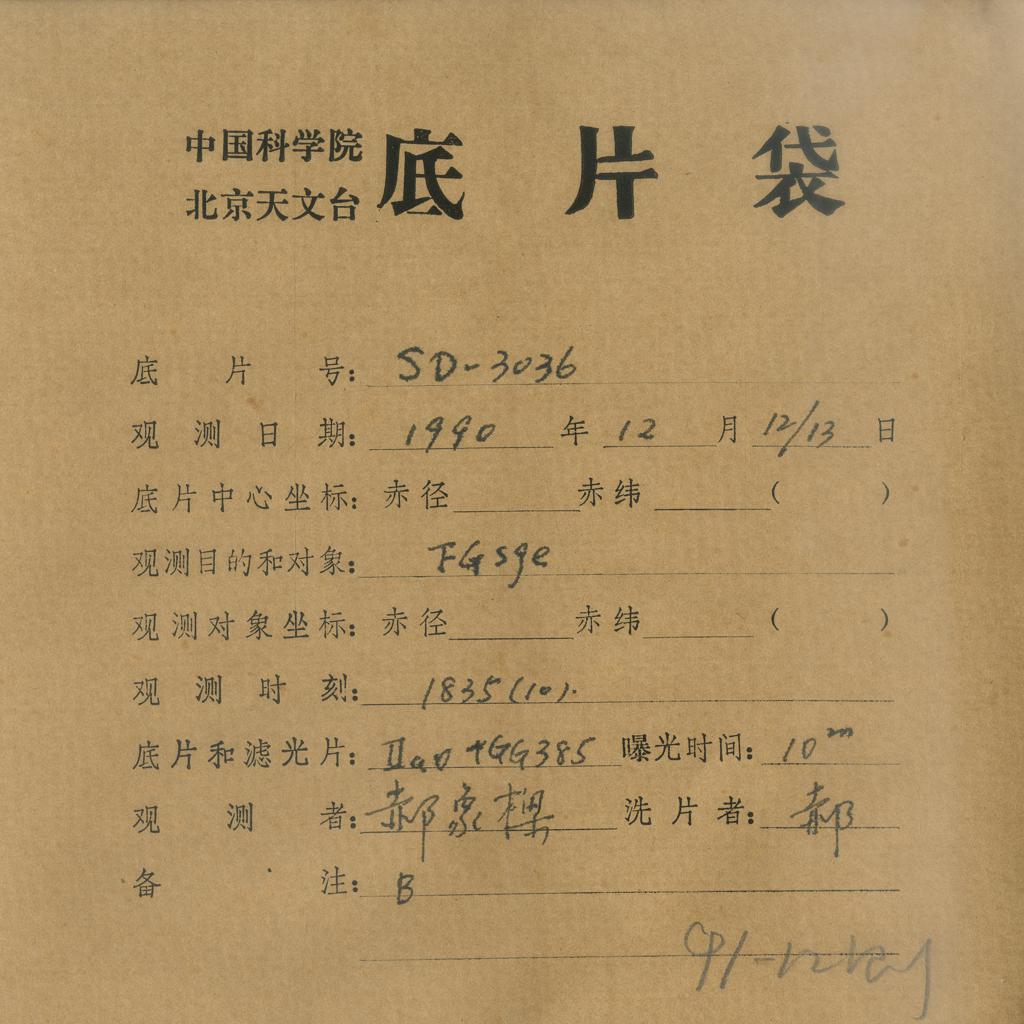 中国科学院
北京天文台
底片袋
底片号: SD-3036
观测日期: 1990年12月12/13日
底片中心坐标: 赤径 赤纬 ( )
观测目的和对象: FG sge
观测对象坐标: 赤径 赤纬 ( )
观测时刻: 1835(10).
底片和滤光片: IIaO+GG385 曝光时间: 10ᵐ
观测者: 郝象樑 洗片者: 郝
备注: B
91-12